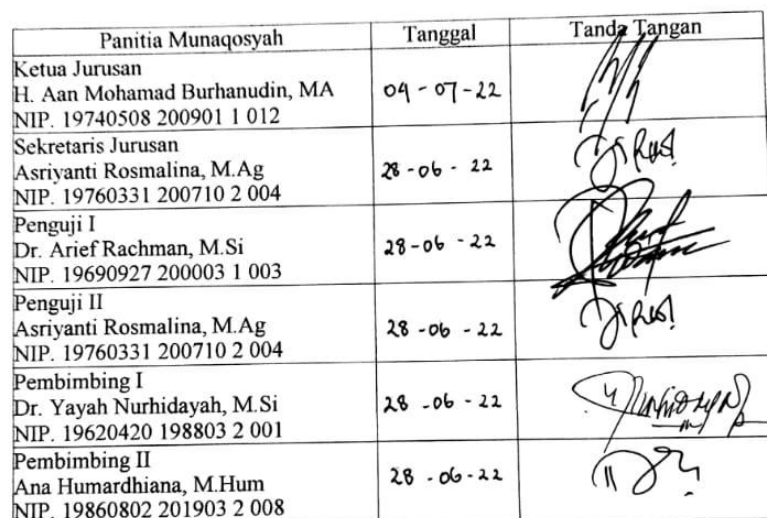 Panitia Munaqosyah Tanggal Tanda Tangan
Ketua Jurusan
H. Aan Mohamad Burhanudin, MA 04 - 07 - 22
NIP. 19740508 200901 1 012
Sekretaris Jurusan
Asriyanti Rosmalina, M.Ag 28 - 06 - 22
NIP. 19760331 200710 2 004
Penguji I
Dr. Arief Rachman, M.Si 28 - 06 - 22
NIP. 19690927 200003 1 003
Penguji II
Asriyanti Rosmalina, M.Ag 28 - 06 - 22
NIP. 19760331 200710 2 004
Pembimbing I
Dr. Yayah Nurhidayah, M.Si 28 - 06 - 22
NIP. 19620420 198803 2 001
Pembimbing II
Ana Humardhiana, M.Hum 28 - 06 - 22
NIP. 19860802 201903 2 008